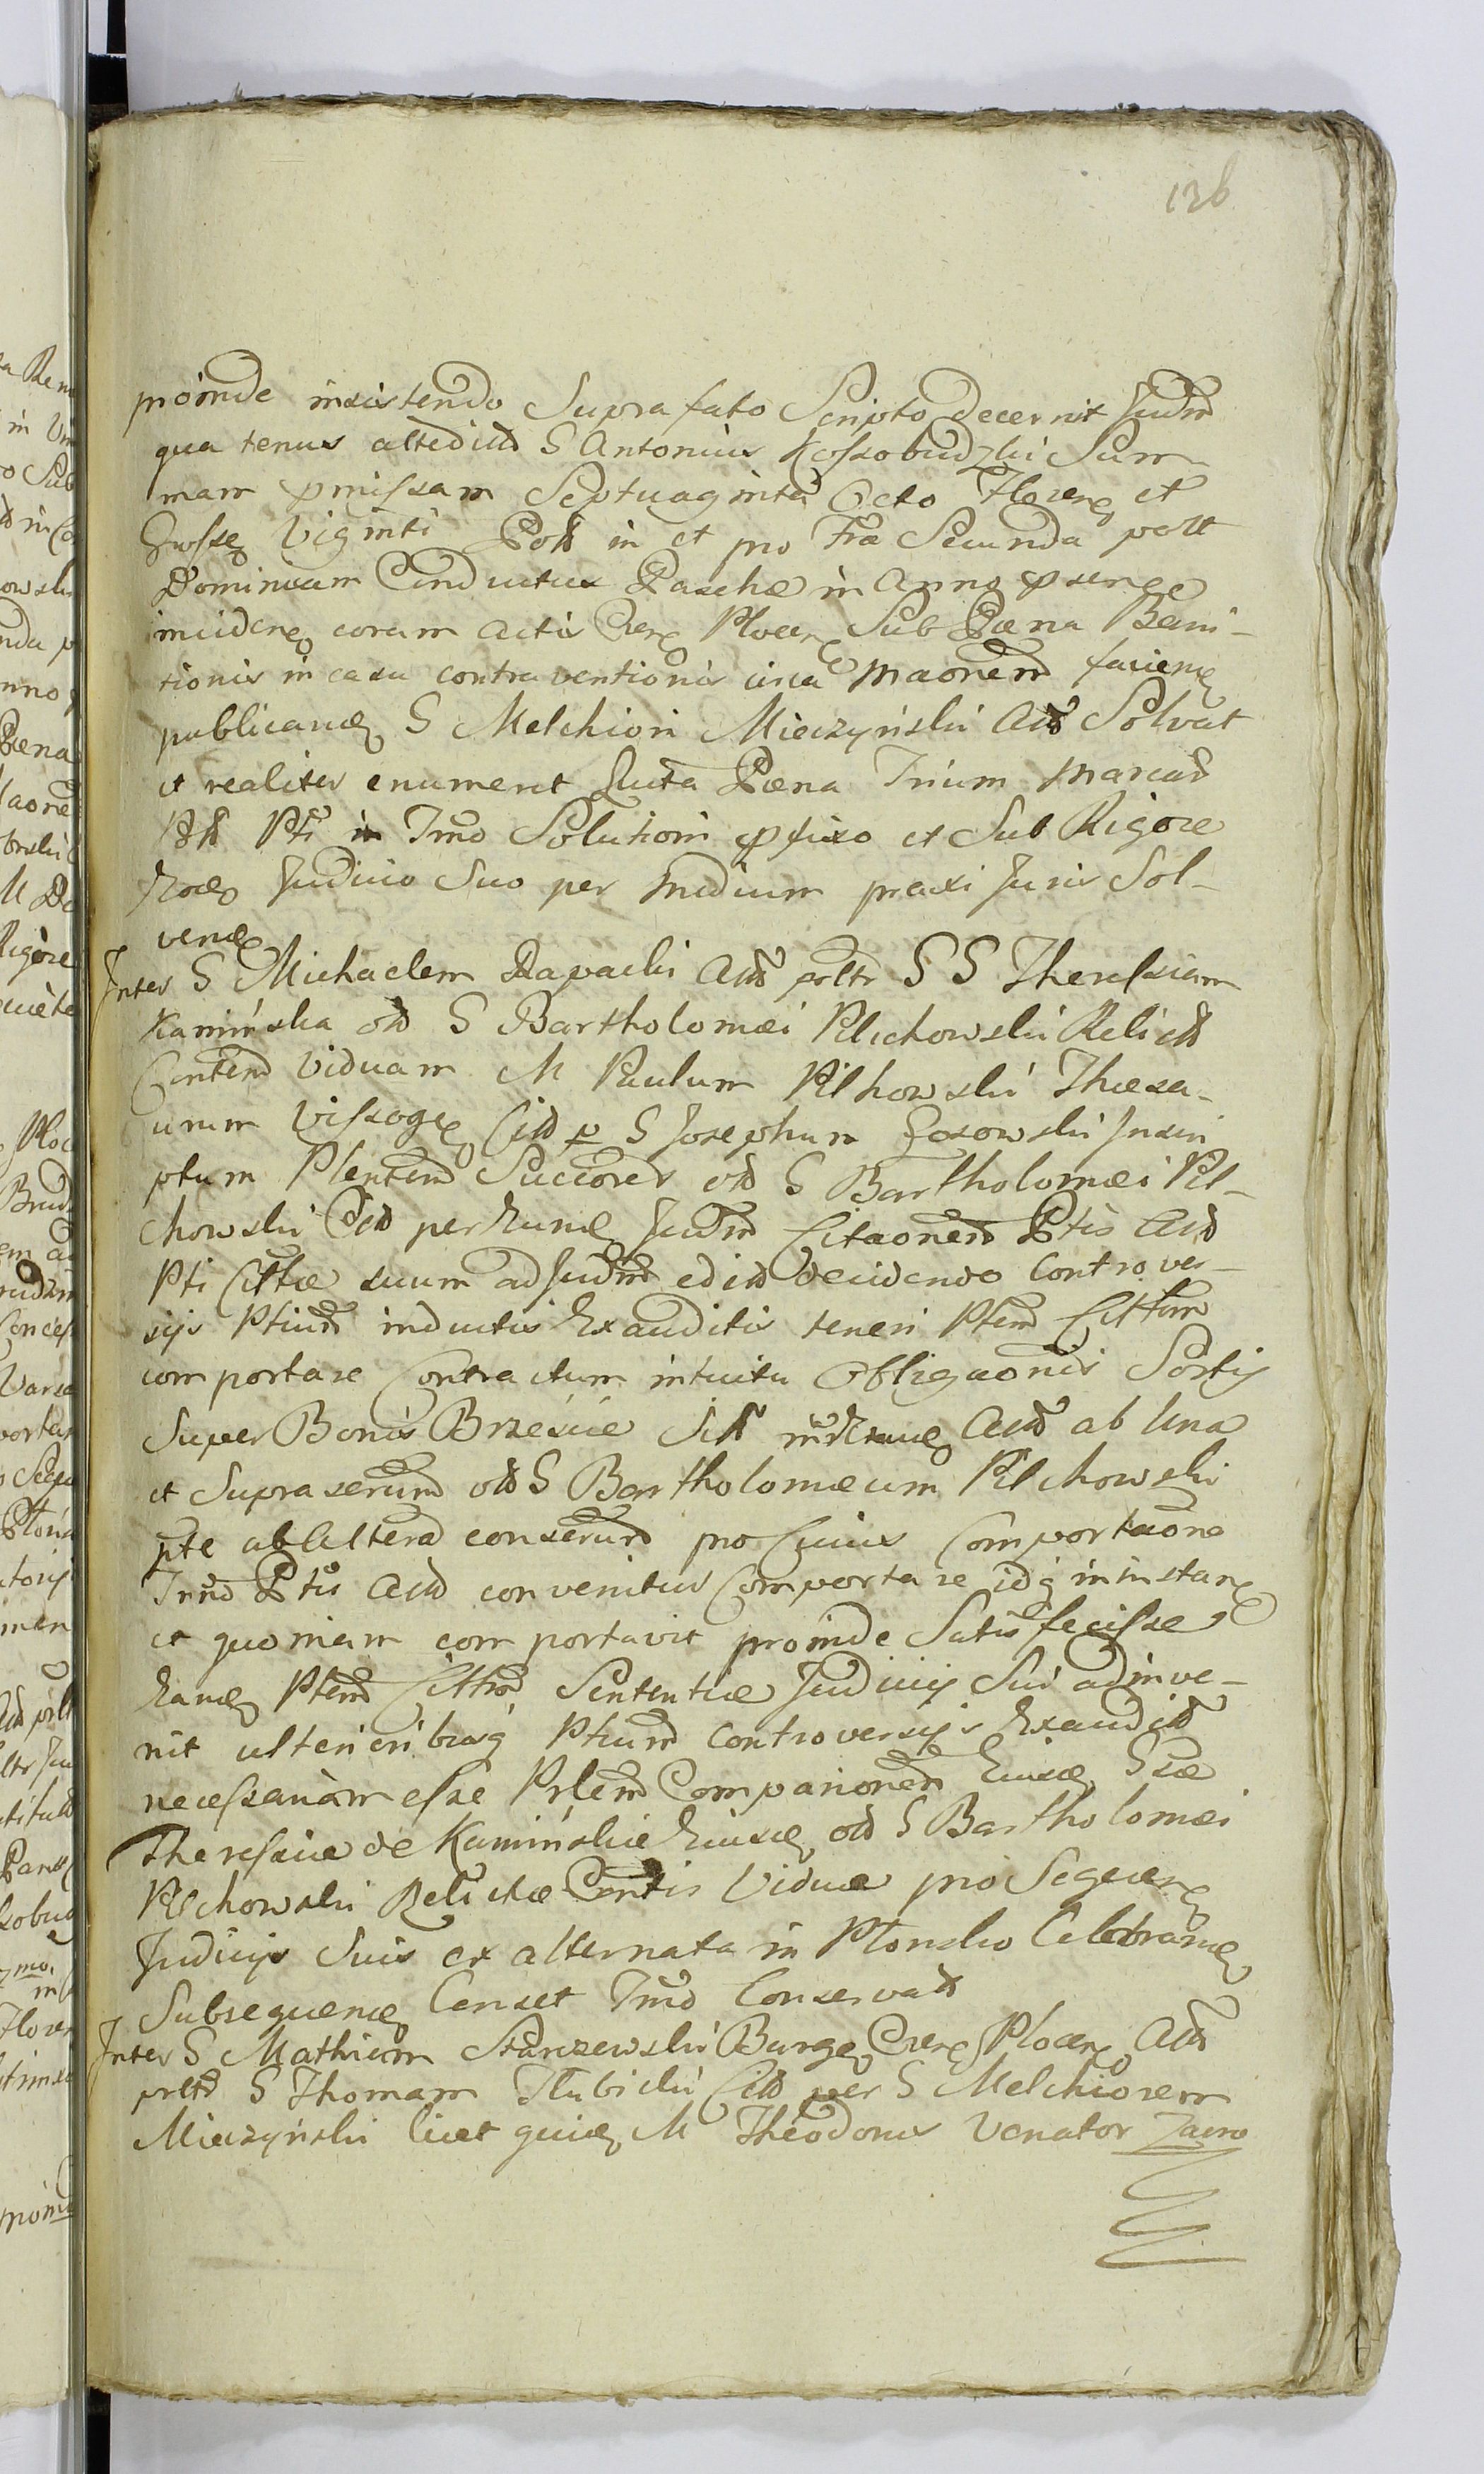 136
proinde insistendo Suprafato Scripto decernit Judm
qua tenus altedictd G Antonius Kossobudzki Sum
mam pmissam Septuaginta Octo Floren et
Grosse Viginti Poll in et pro Fra Secunda post
Dominicam Conductus Paschæ in Anno psente
inciden coram Actis Cren Plocen Sub Pæna Bani-
tionis in casu contraventionis circa maonem facien
publicand G Melchiori Mieczynski Act Solvat
et realiter enumeret Jucta Pæna Trium Marcar
Pti in Tmo Solutioni pfixo et Sub Rigore
Judicio Suo per medium praxi Juris Sol-
vend
Inter G Michaelem Rapacki Act G G Theressiam
Kaminska old G Bartholomæi Pilchowski Relictd
Contem viduam M Paulum Pilhowski Thesa-
urum Vissoge Citd p G Josephum Gosowski Inscri
ptum Plentem Succores old G Bartholomæi Pil-
chowski Citd per hund Judm Citaonem Ptis Act
Pti Cittæ suum ad Judm edictd decidendo Controver-
sijs Ptium inductis Exauditis teneri Ptem Cittam
comportare Contractum intuitu Obligaonis Sortis
Super Bonis Brzescie Act ab Una
et Supra serum old G Bartholomæum Pilchowski
pte ab Altera conserum pro Cuius Comportaone
Tmo Ptis Act convenitur Comportare idq in instan
et quoniam comportavit proinde Satisfecisse
hanc Ptem Cittam Sententiæ Judicij Sui adinve-
nit ulterioribusq Ptium Controversijs Exauditd
necessariam esse Prlem Comparionem Eiusd Gsæ
Theressiæ de Kaminskie Eiusd old G Bartholomæi
Pilchowski Relictæ Contis Viduæ pro Sequen
Judicijs Suis ex alternata in Plonsko Celebrand
Subsequend Censet Tmo Conservatd
Inter G Mathiam Stanzewski Burge Cren Plocen Act
G Thomam Tlubicki Citd per G Melchiorem
Mieczynski licet quid M Theodorus Venator Zacro